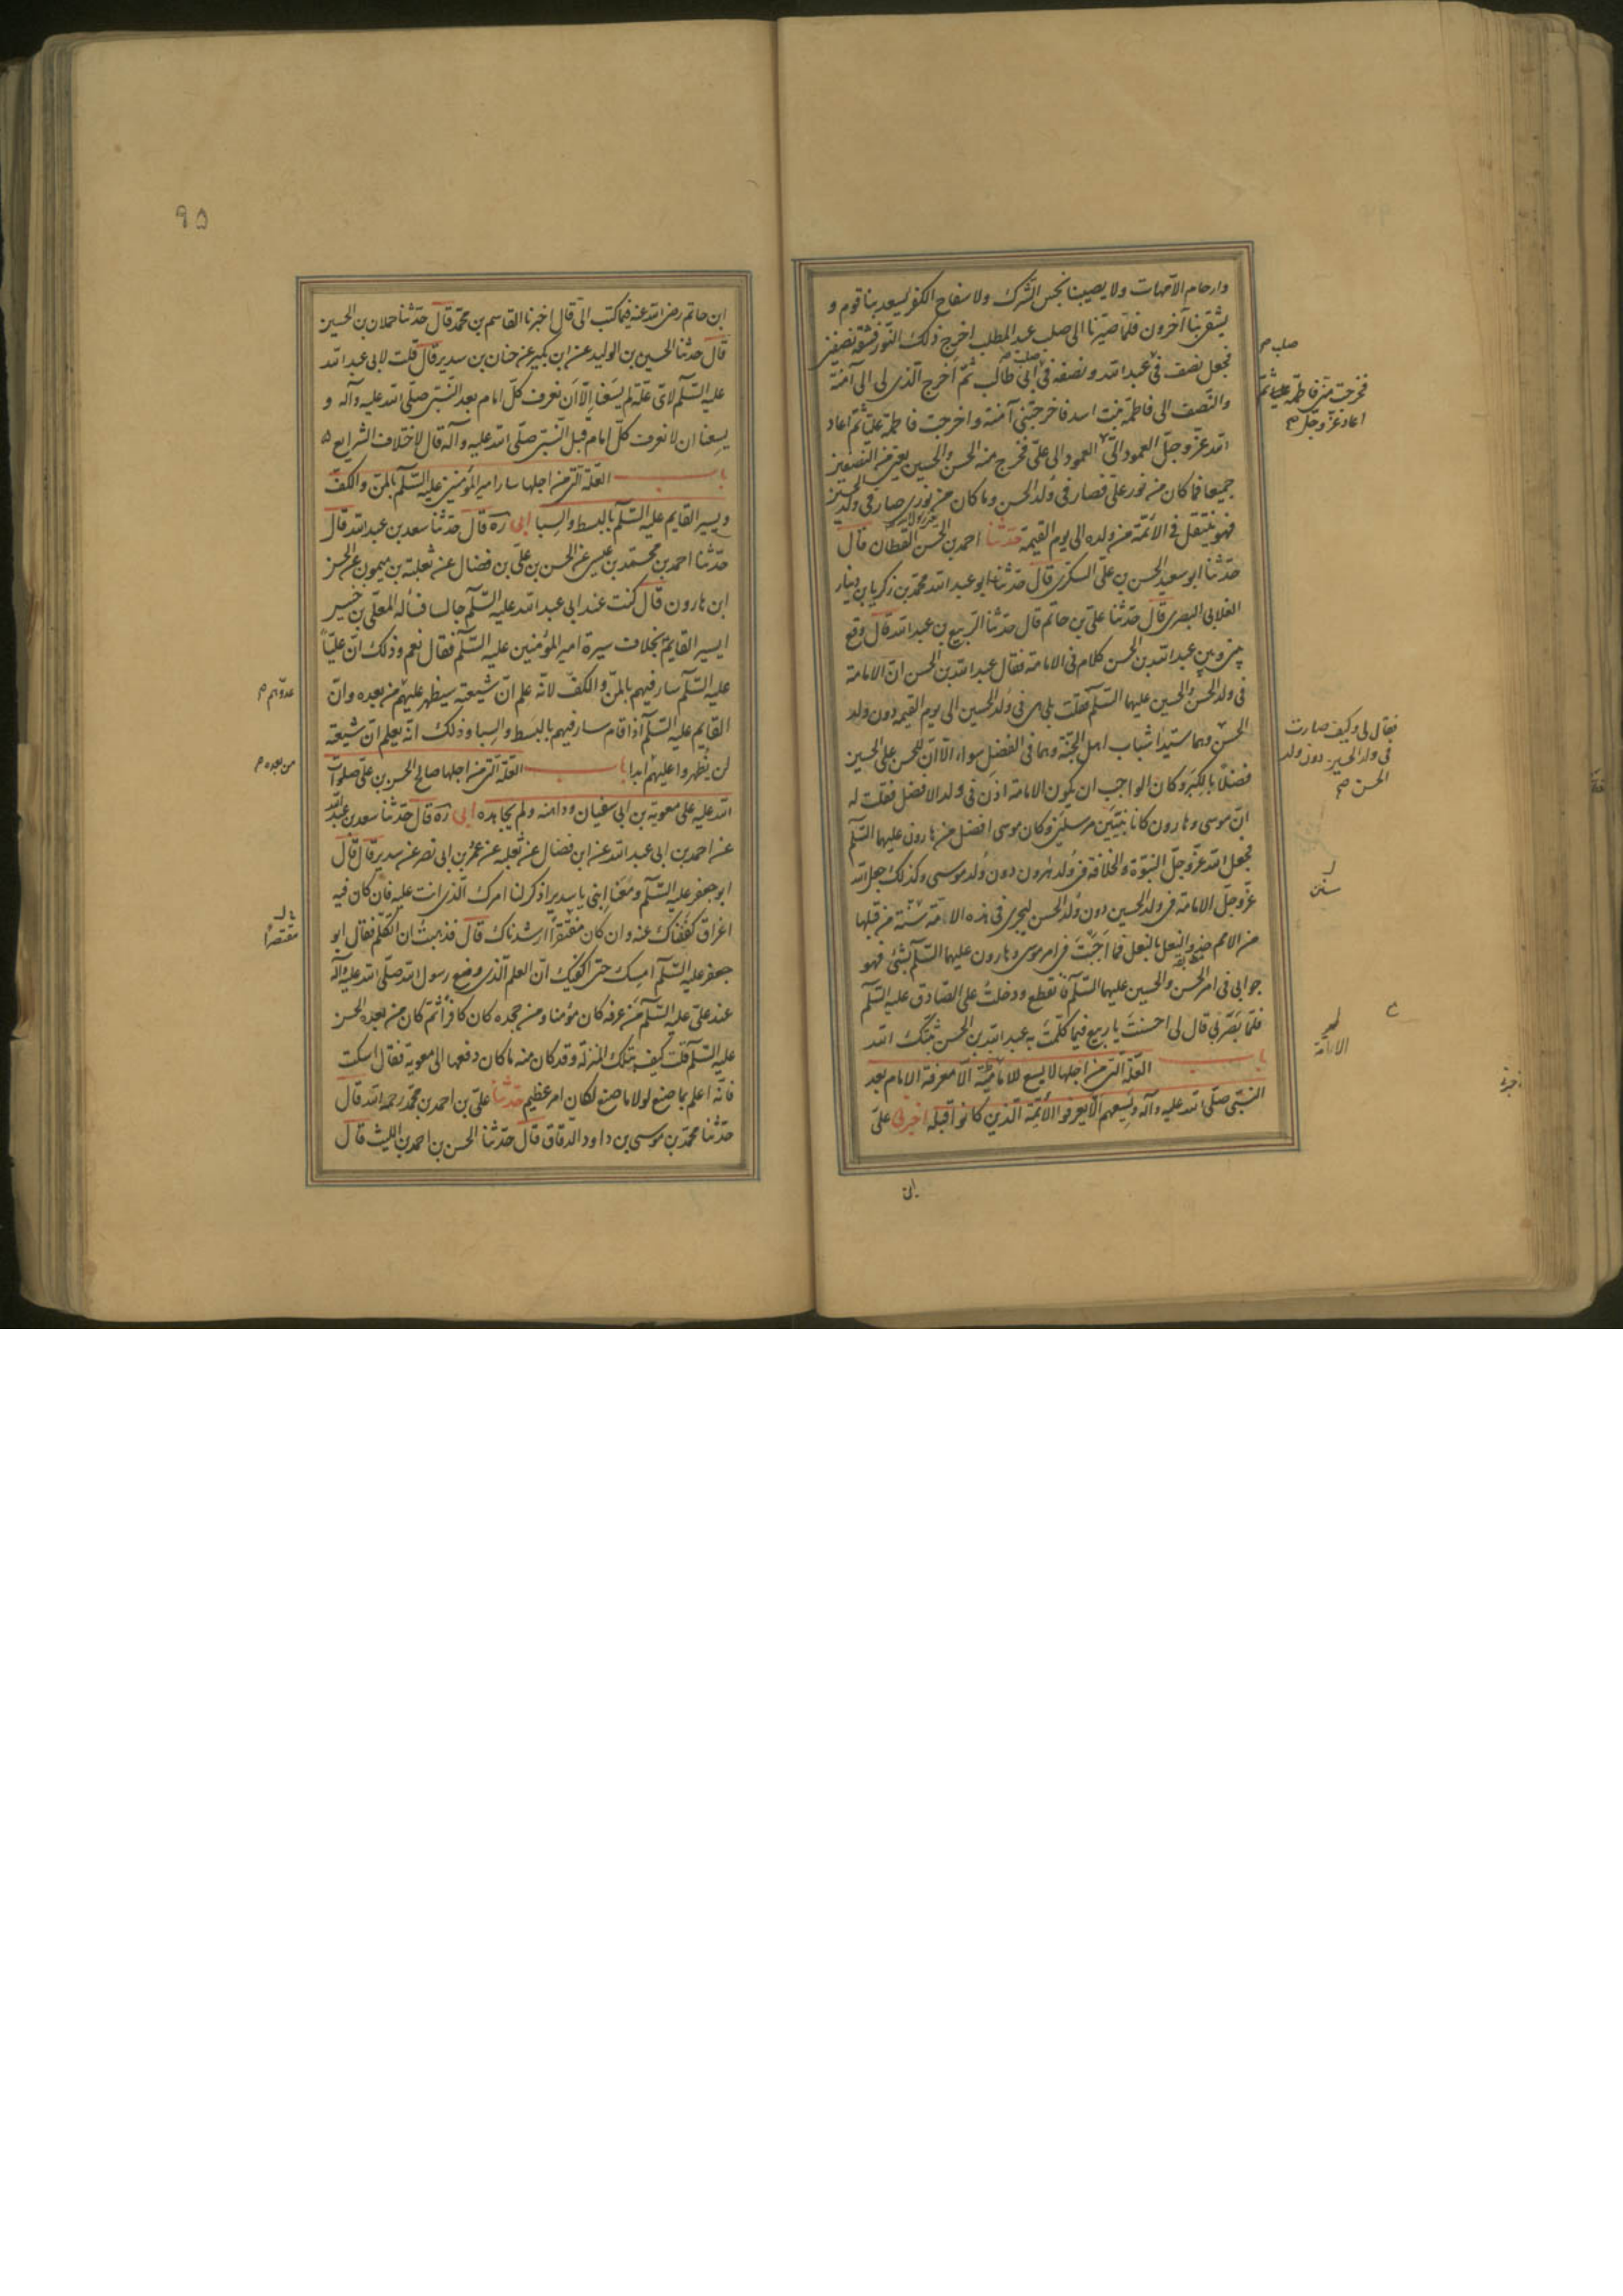 وارحام الامهات ولا يصيبنا نجس الشرك ولا سفاح الكفر يسعد بنا قوم و
يشقى بنا آخرون فلما صيّرنا الى صلب عبد المطلب اخرج ذلك النور فشقه نصفين
فجعل نصفه فى عبد الله ونصفه فى ابى طالب ثم اخرج الذى لى الى آمنة
والنصف الى فاطمة بنت اسد فاخرجتنى آمنة واخرجت فاطمة عليا ثم اعاد
الله عز وجل العمود الىّ العمود الى على فخرج منه الحسن والحسين يعنى من النصفين
جميعا فما كان من نور على فصار فى ولد الحسن وما كان من نورى صار فى ولد الحسين
فهو ينتقل فى الائمة من ولده الى يوم القيمة حدثنا احمد بن الحسن القطان قال
حدثنا ابو سعيد الحسن بن على السكرى قال حدثنا ابو عبد الله محمد بن زكريا بن دينار
الغلابى البصرى قال حدثنا على بن حاتم قال حدثنا الربيع بن عبد الله قال وقع
بينى وبين عبد الله بن الحسن كلام فى الامامة فقال عبد الله بن الحسن ان الامامة
فى ولد الحسن والحسين عليهما السلم فقلت بلى هى فى ولد الحسين الى يوم القيمة دون ولد
الحسن وهما سيدا شباب اهل الجنة وهما فى الفضل سواء الا ان للحسن على الحسين
فضلا بالكبر وكان الواجب ان يكون الامامة اذن فى ولد الافضل فقلت له
ان موسى وهارون كانا نبيين مرسلين وكان موسى افضل من هارون عليهما السلم
فجعل الله عز وجل النبوة والخلافة فى ولد هرون دون ولد موسى وكذلك جعل الله
عز وجل الامامة فى ولد الحسين دون ولد الحسن ليجرى فى هذه الامة سنة من قبلها
من الامم حذو النعل بالنعل فما اجبت فى امر موسى وهارون عليهما السلم بشئ فهو
جوابى فى امر الحسن والحسين عليهما السلم فانقطع ودخلت على الصادق عليه السلم
فلما بصر بى قال لى احسنت يا ربيع فيما كلمت به عبد الله بن الحسن ثبتك الله
باب العلة التى من اجلها لا يسع للامة الا معرفة الامام بعد
النبى صلى الله عليه وآله ويسعهم الا يعرفوا الائمة الذين كانوا قبله اخبرنى على
صلب صح
فخرجت منى فاطمة عليها ثم
اعاد عز وجل صح
فقال لى وكيف صارت
فى ولد الحسين دون ولد
الحسن صح
سنن
ابن
٩٥
ابن حاتم رضى الله عنه فيما كتب الىّ قال اخبرنا القاسم بن محمد قال حدثنا حملان بن الحسين
قال حدثنا الحسين بن الوليد عن ابن بكير عن حنان بن سدير قال قلت لابى عبد الله
عليه السلم لاى علة لم يسعنا الا ان نعرف كل امام بعد النبى صلى الله عليه وآله و
يسعنا ان لا نعرف كل امام قبل النبى صلى الله عليه وآله قال لاختلاف الشرايع ٥
باب العلة التى من اجلها سار امير المؤمنين عليه السلم بالمن والكف
ويسير القايم عليه السلم بالبسط والسبا ابى ره قال حدثنا سعد بن عبد الله قال
حدثنا احمد بن محمد بن عيسى عن الحسن بن على بن فضال عن ثعلبة بن ميمون عن الحسن
ابن هارون قال كنت عند ابى عبد الله عليه السلم جالسا فسأله المعلى بن خنيس
ايسير القايم بخلاف سيرة امير المؤمنين عليه السلم فقال نعم وذلك ان عليّاً
عليه السلم سار فيهم بالمن والكف لانه علم ان شيعته سيظهر عليهم من بعده وان
القايم عليه السلم اذا قام سار فيهم بالبسط والسبا وذلك انه يعلم ان شيعته
لن يظهروا عليهم ابدا باب العلة التى من اجلها صالح الحسن بن على صلوات
الله عليه على معوية بن ابى سفيان وداهنه ولم يجاهده ابى ره قال حدثنا سعد بن عبد الله
عن احمد بن ابى عبد الله عن ابن فضال عن ثعلبه عن عمر بن ابى نصر عن سدير قال قال
ابو جعفر عليه السلم ومعنا ابنى يا سدير اذكر لنا امرك الذى انت عليه فان كان فيه
اغراق كففناك عنه وان كان مقتصرا ارشدناك قال فذهبت ان اتكلم فقال ابو
جعفر عليه السلم امسك حتى اكفيك ان العلم الذى وضع رسول الله صلى الله عليه وآله
عند على عليه السلم من عرفه كان مؤمنا ومن جحده كان كافرا ثم كان من بعده الحسن
عليه السلم قلت كيف بتلك المنزلة وقد كان منه ما كان دفعها الى معوية فقال اسكت
فانه اعلم بما صنع لولا ما صنع لكان امر عظيم حدثنا على بن احمد بن محمد رحمه الله قال
حدثنا محمد بن موسى بن داود الدقاق قال حدثنا الحسن بن احمد بن الليث قال
عدوهم م
من بعده م
مقتصراً